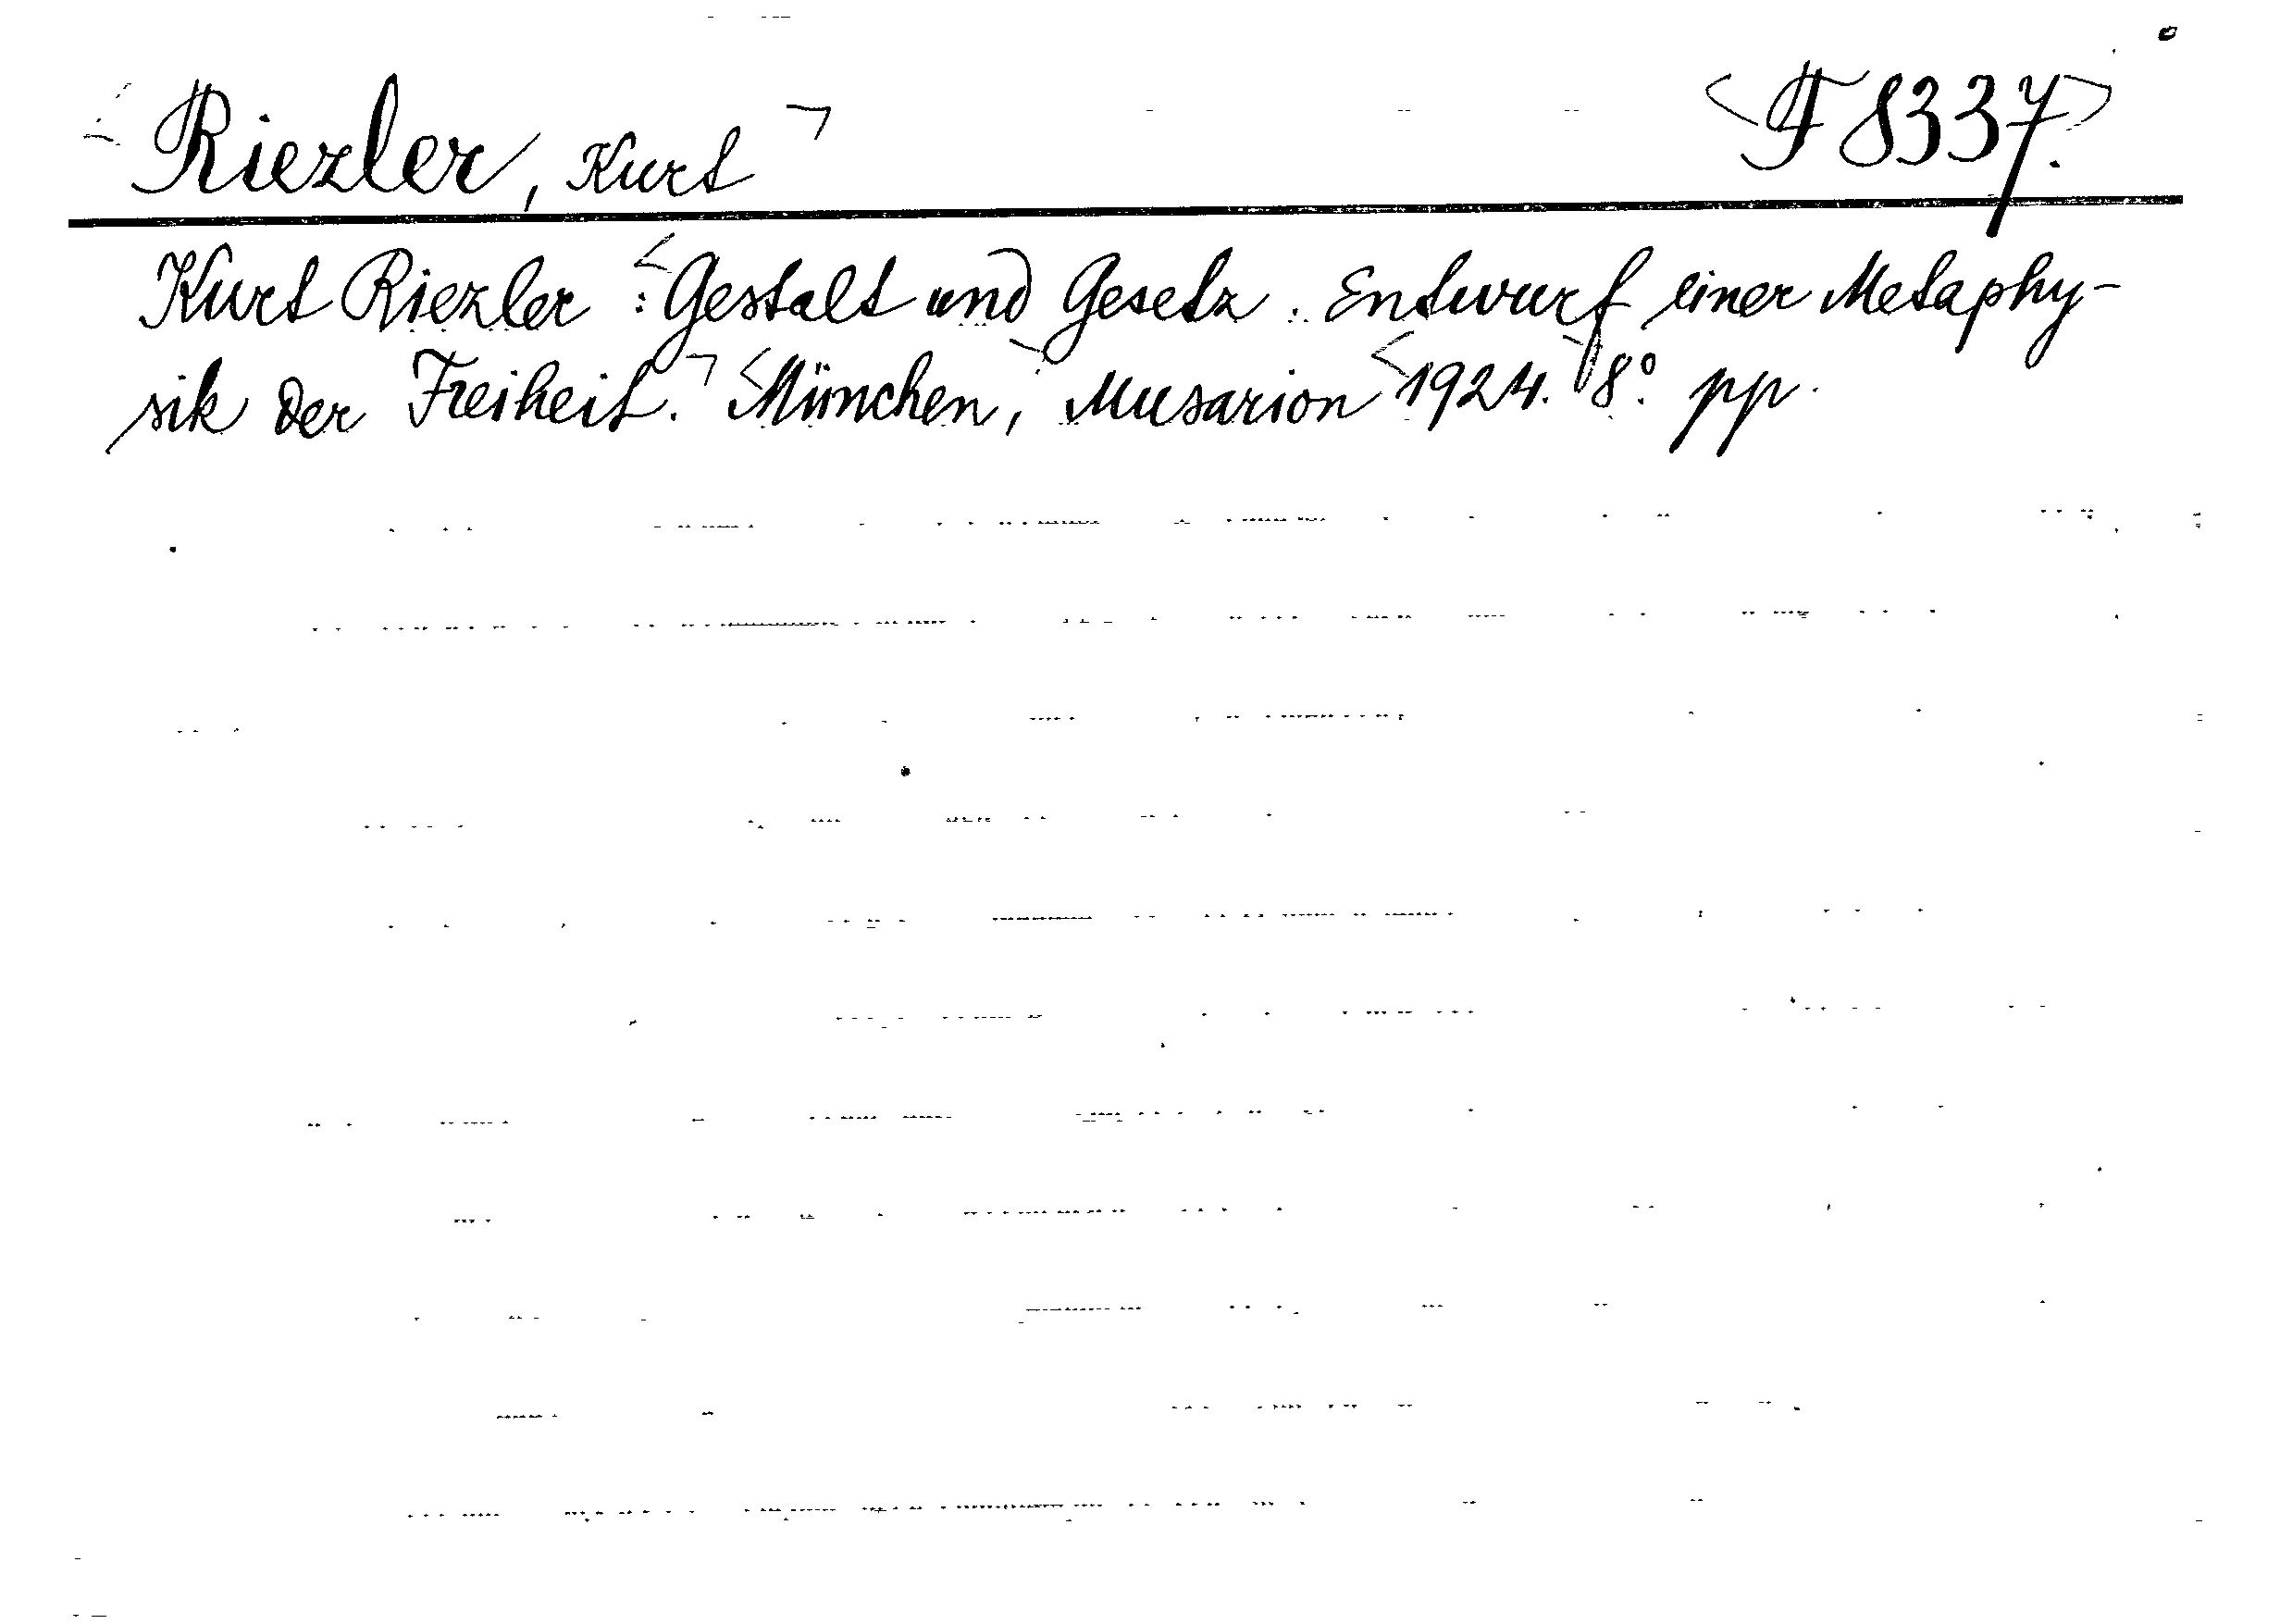 Riezler, Kurt F 8337.
Kurt Riezler: Gestalt und Gesetz. Entwurf einer Metaphy-
sik der Freiheit. München, Musarion 1924. 8° pp.